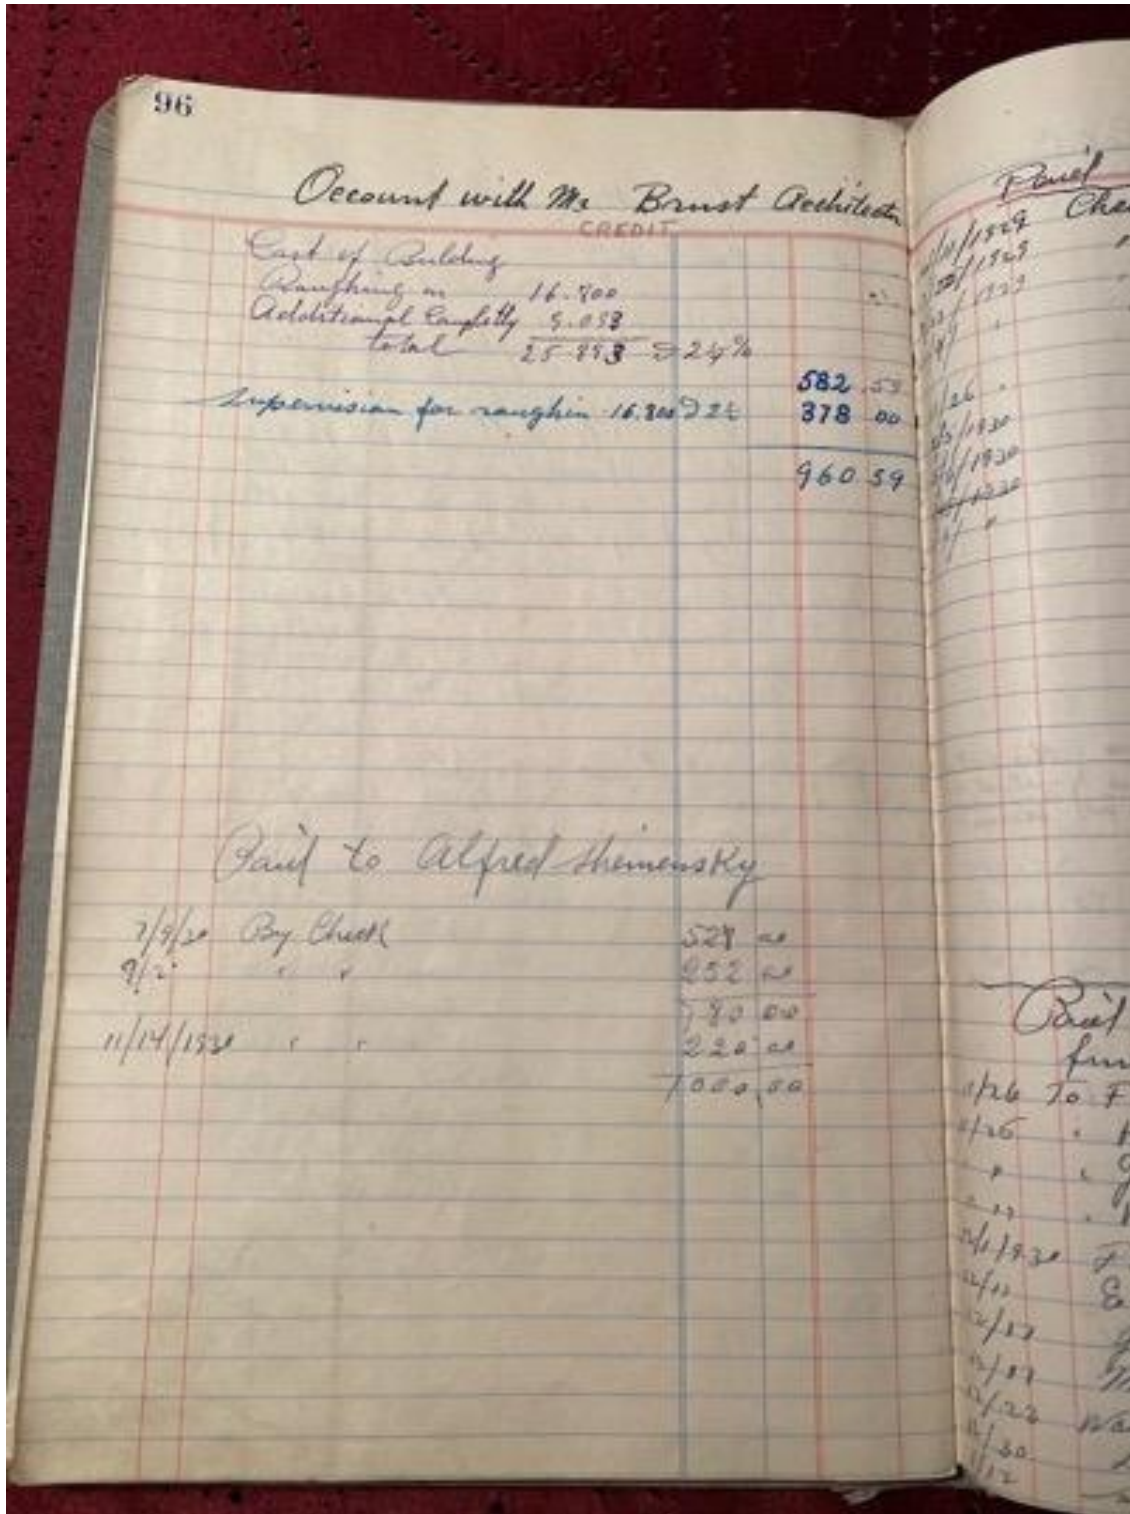 96
Account with Mr Brust Architect
CREDIT
Cost of Building
Roughing in 16.800
Additional 9.093
total 25.893 @ 2¼%
582 59
Supervision for roughin 16.800 @ 2¼
378 00
960 59
Paid to Alfred
7/9/30 By Check 528 00
9/2 " " 252 00
780 00
11/14/1930 " " 220 00
1000,00
Paid
11/11/1929
1929
1929
/26 "
/1930
/1930
/1930
Paid
1/26 To F
1/26
12/1/1930
12/17
12/17
12/22
12/30